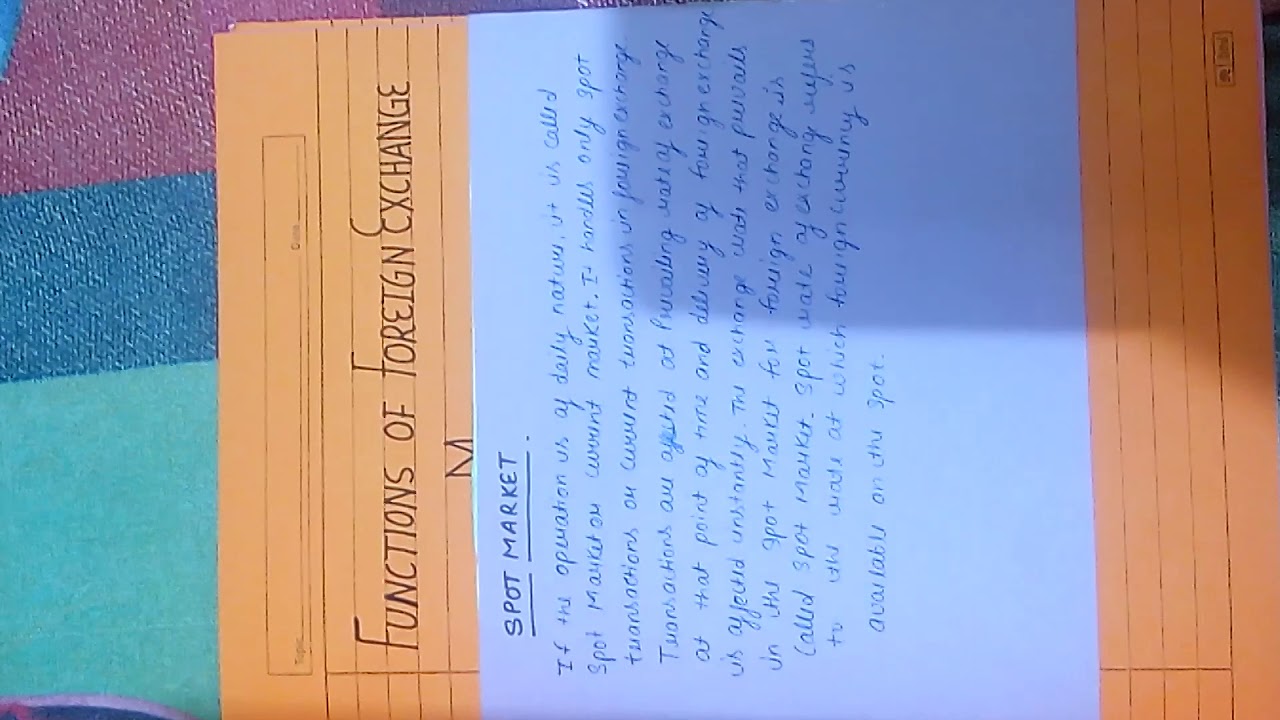 Topic
Date
FUNCTIONS OF FOREIGN EXCHANGE
M
SPOT MARKET.
If the operation is of daily nature, it is called
Spot Market or current market. It handles only spot
transactions or current transactions in foreign exchange.
Transactions are affected at Prevailing rate of exchange
at that point of time and delivery of foreign exchange
is affected instantly. The exchange rate that prevails
in the spot Market for foreign exchange is
called spot Market. Spot rate of exchange refers
to the rate at which foreign currency is
available on the spot.